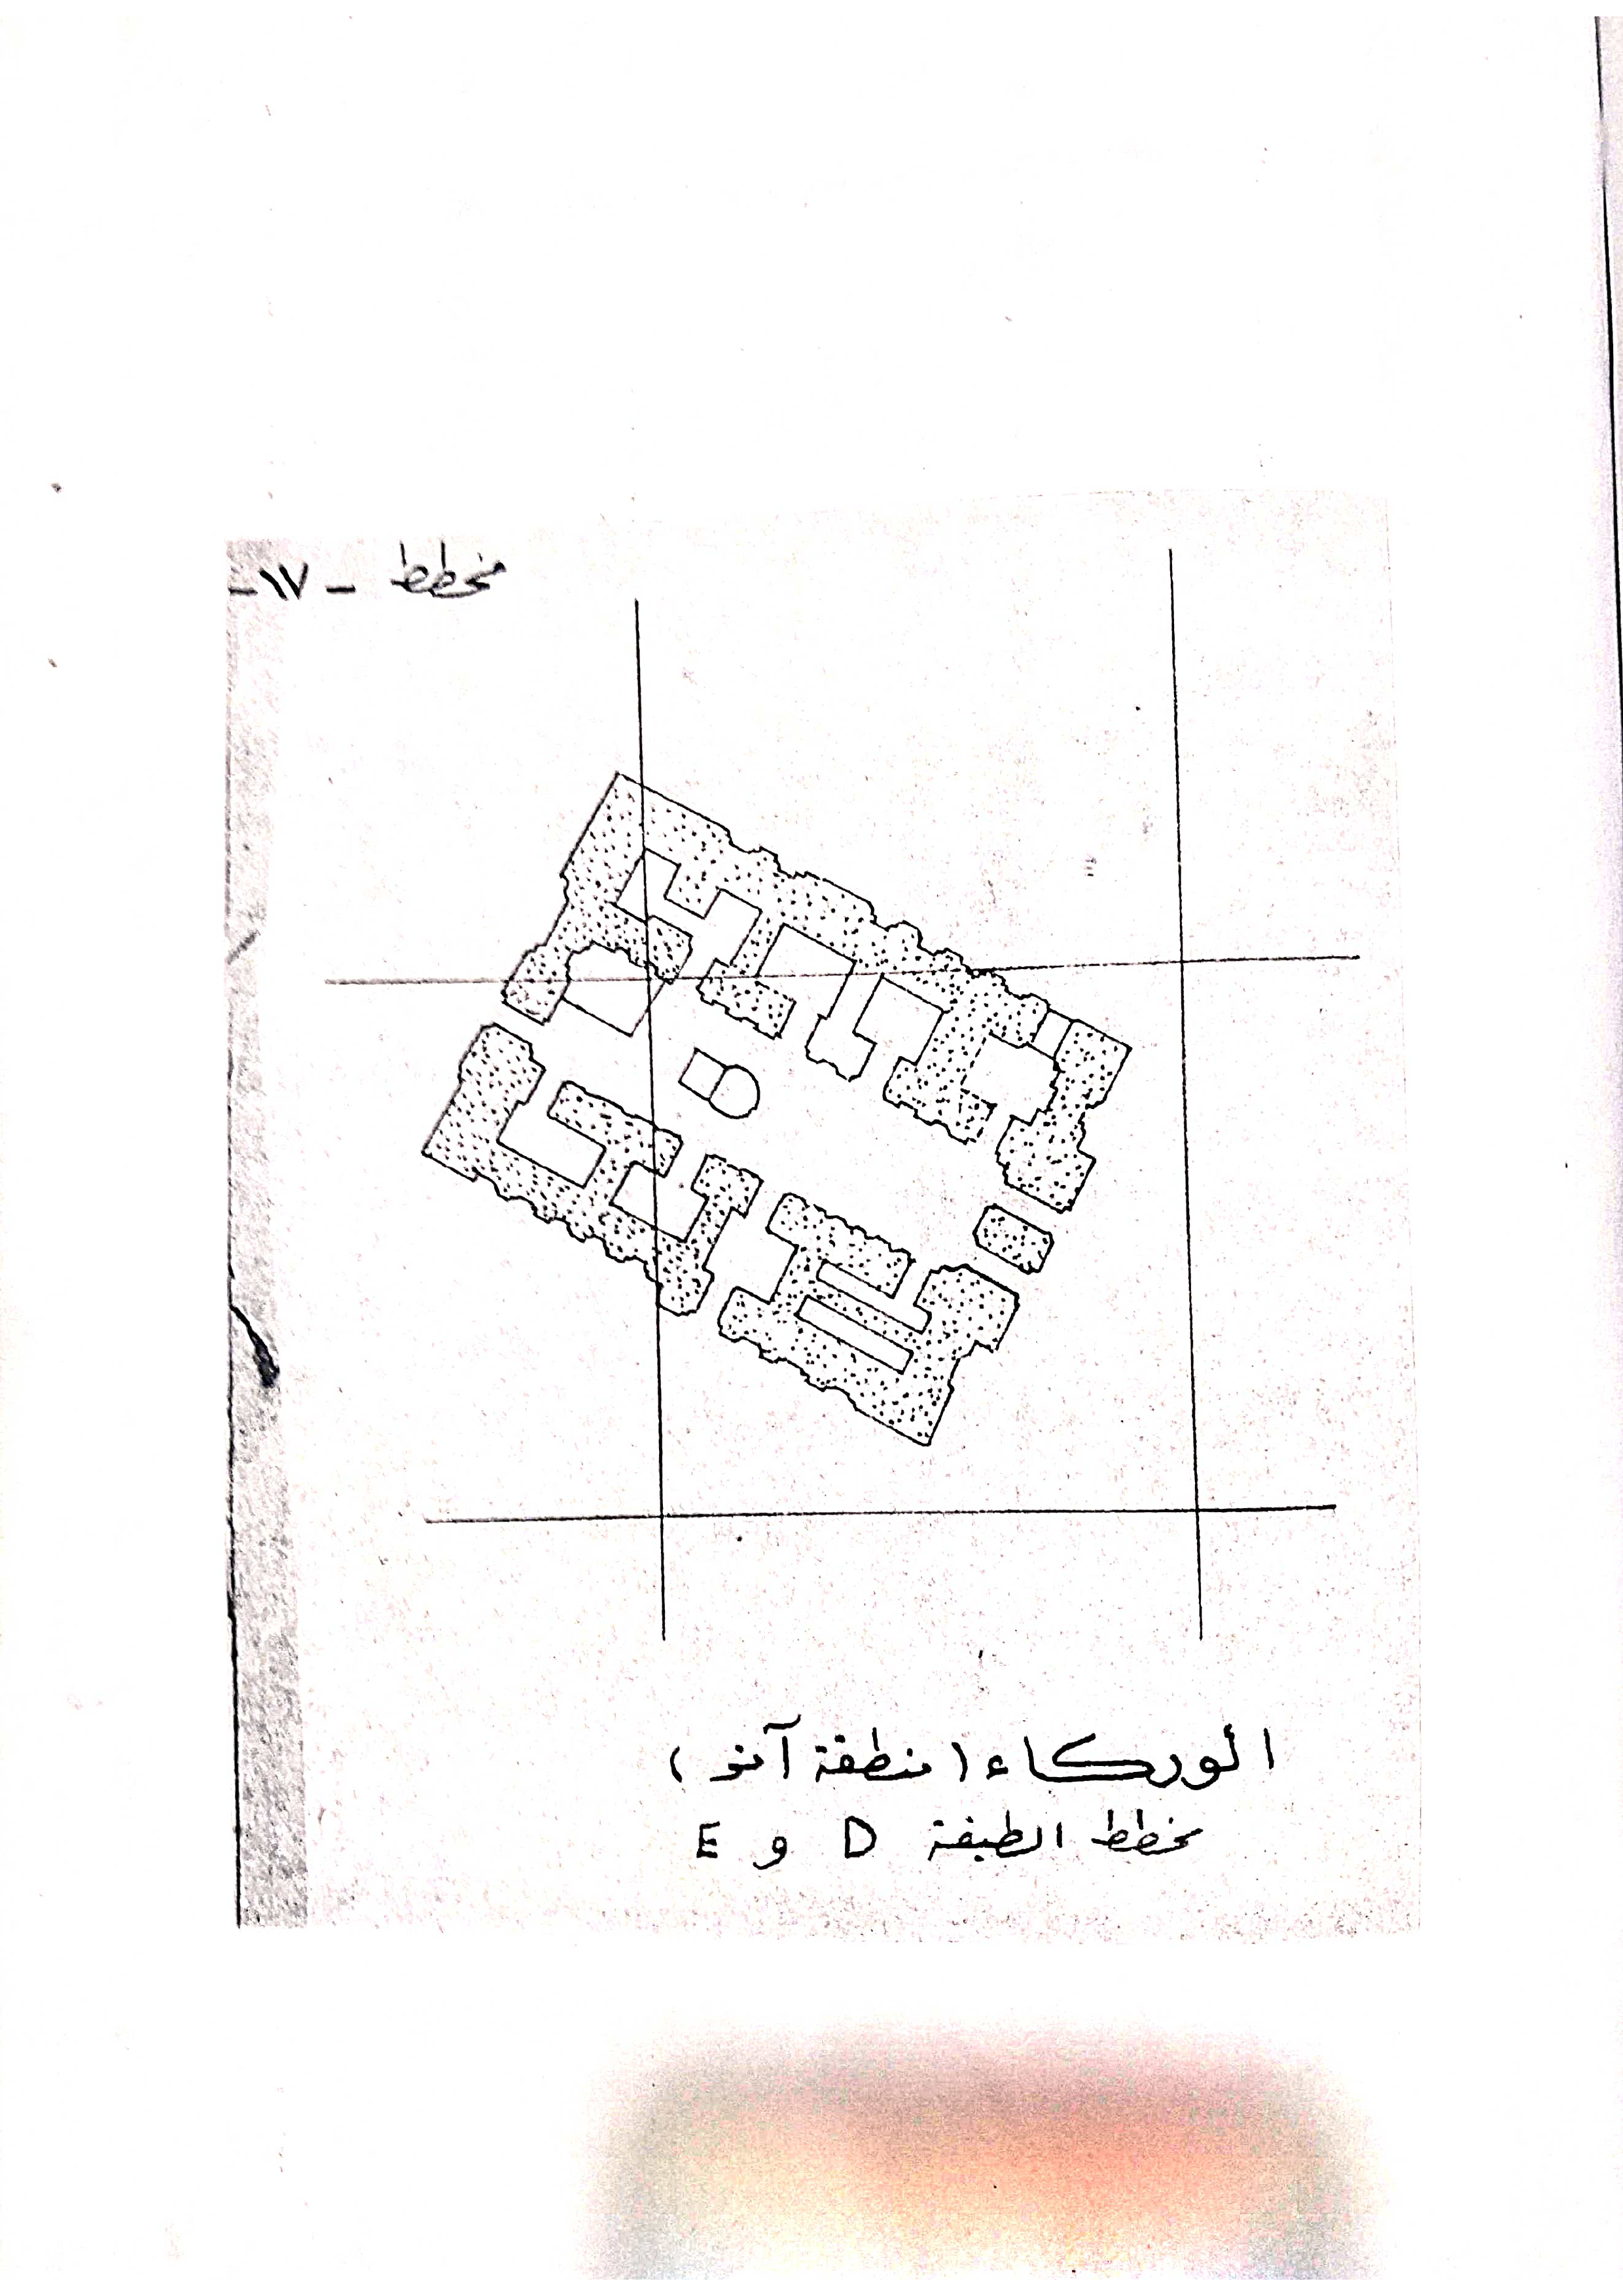 مخطط - ١٧-
الوركاء (منطقة آنو)
مخطط الطبقة D و E